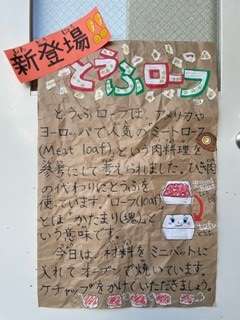 新登場!!
とうふローフ
とうふローフは、アメリカや
ヨーロッパで人気の“ミートローフ
(Meat loaf)”という肉料理を
参考にして考えられました。ひき肉
の代わりにとうふを
使っています。“ローフ(loaf)
とは”かたまり(塊)”と
いう意味です。
今日は、材料をミニバットに
入れてオーブンで焼いています。
ケチャップをかけていただきましょう。